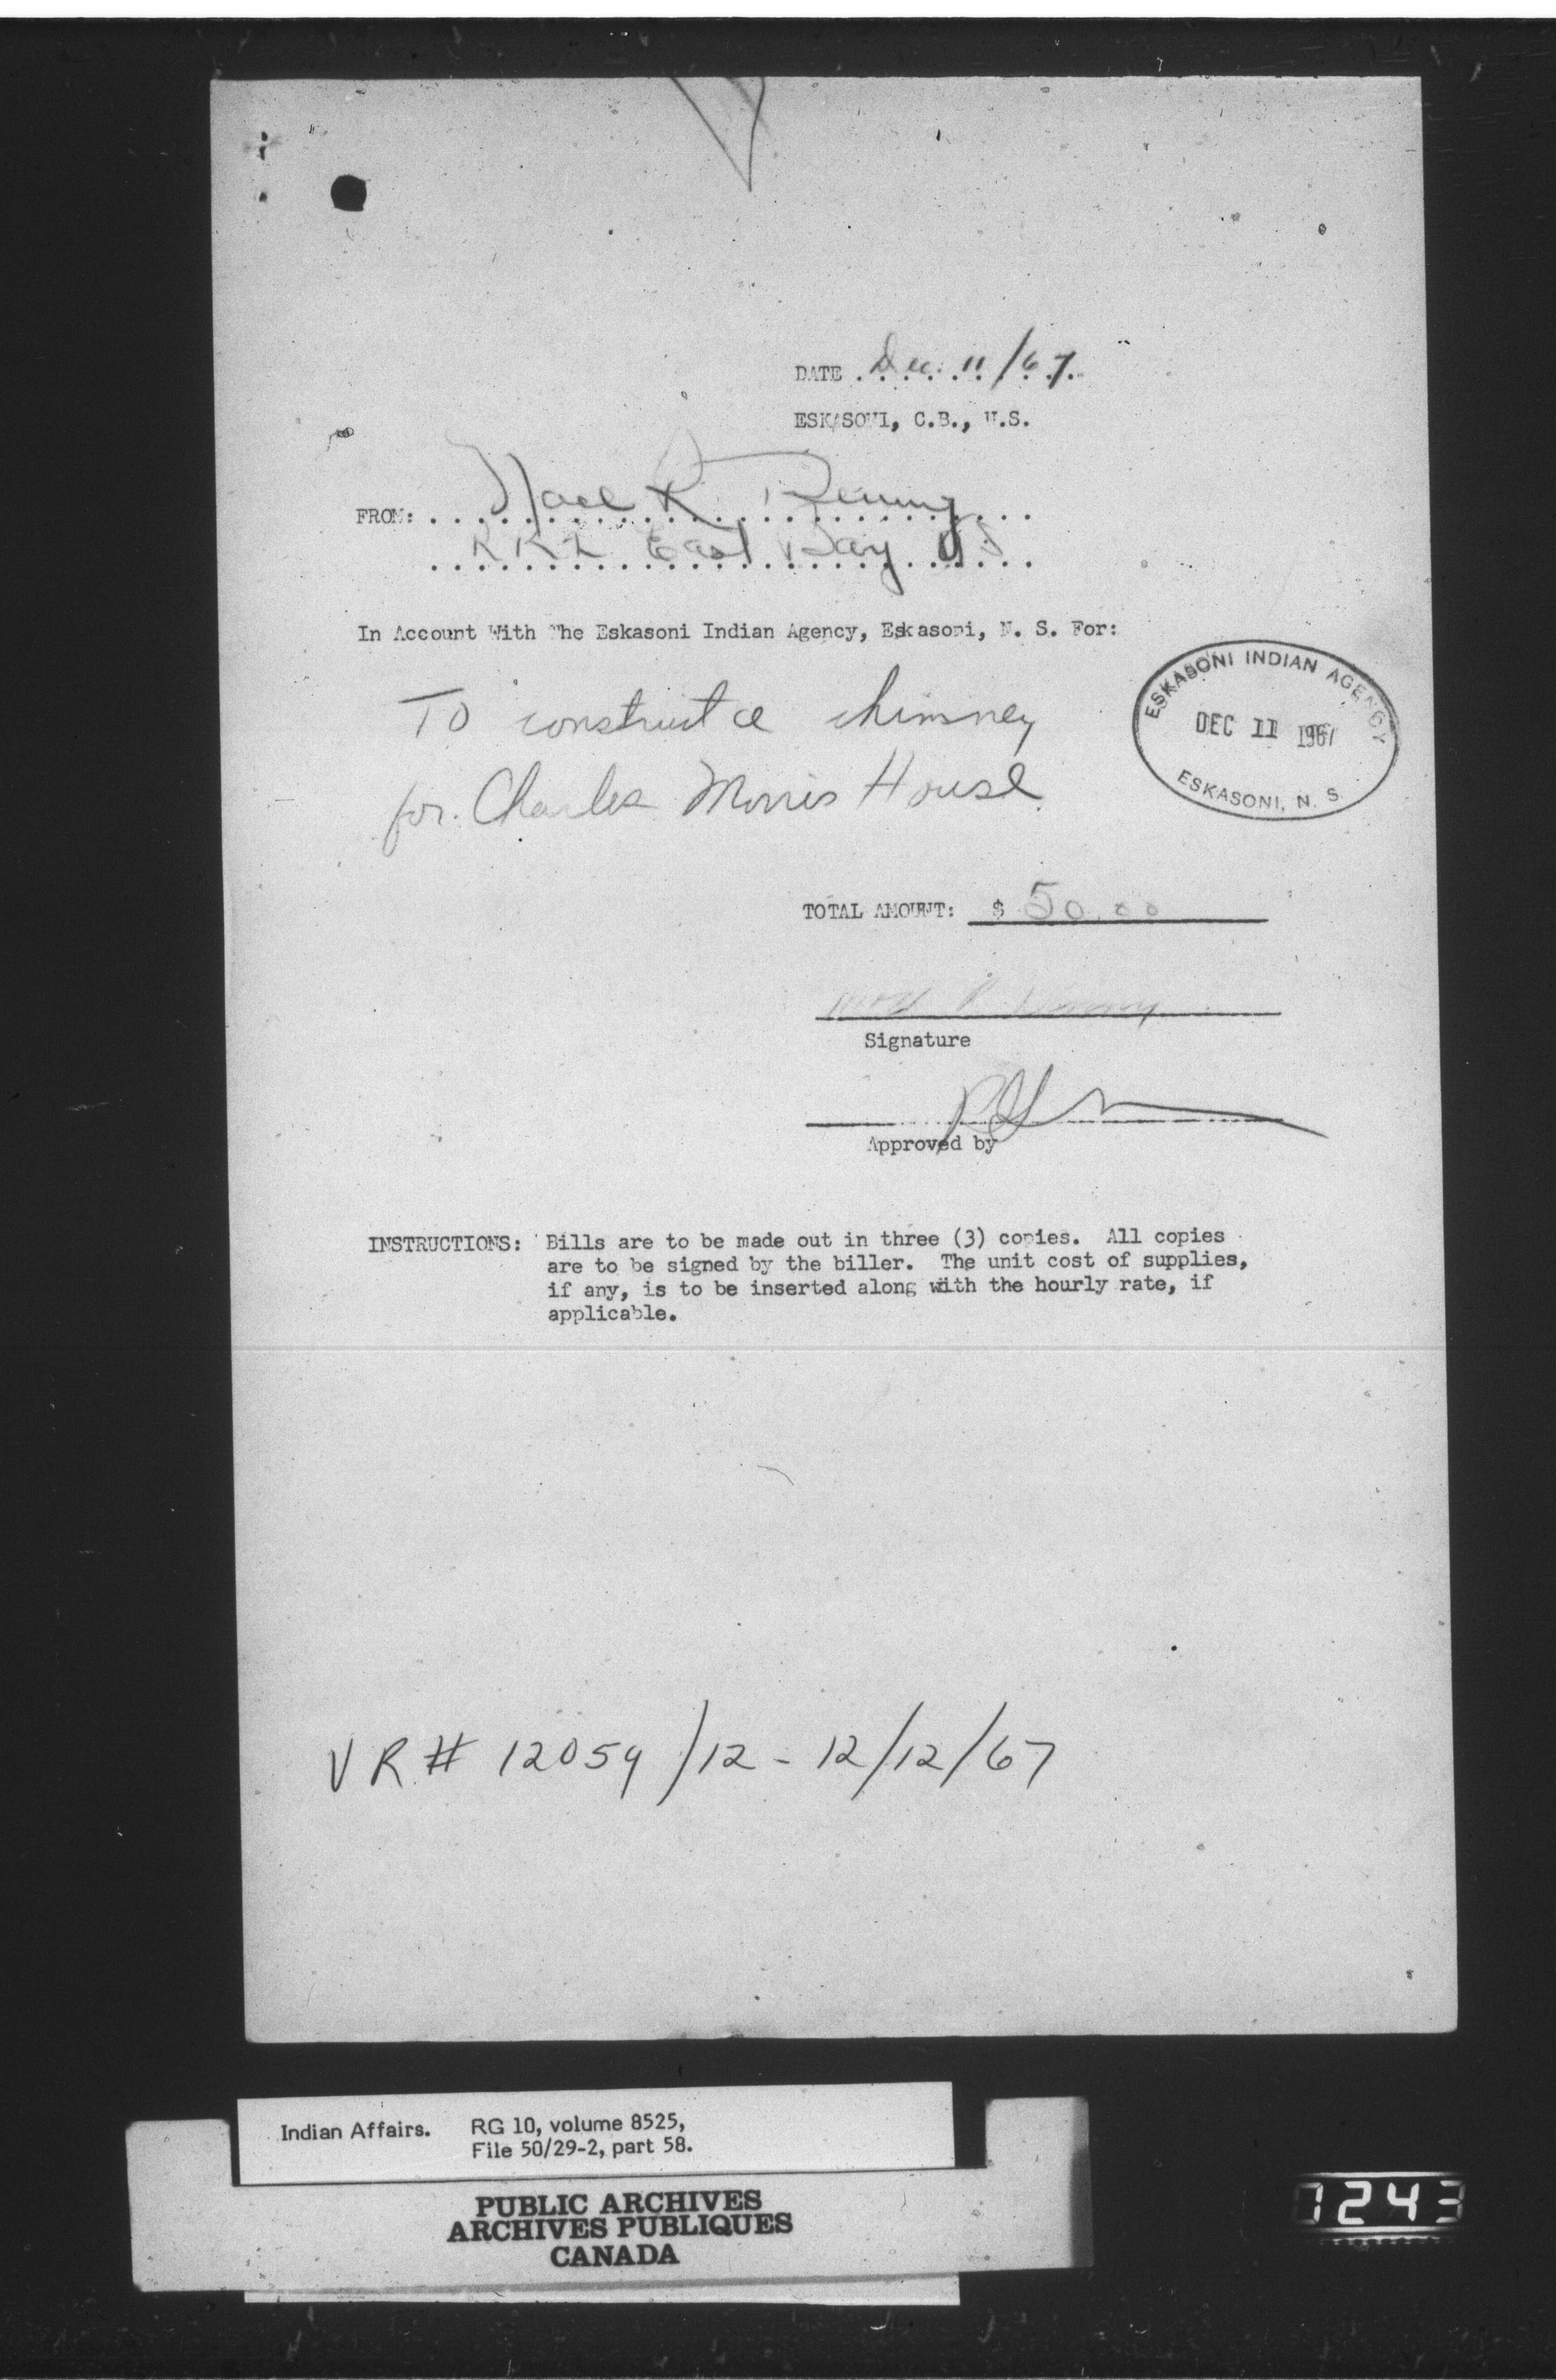 DATE Dec. 11/67.
ESKASONI, C.B., N.S.
FROM: Noel R. Denny
RR2 East Bay NS
In Account With The Eskasoni Indian Agency, Eskasoni, N. S. For:
To construct a chimney
for Charles Morris House
ESKASONI INDIAN AGENCY
DEC 11 1967
ESKASONI, N. S.
TOTAL AMOUNT: $ 50.00
Noel R Denny
Signature
Approved by
INSTRUCTIONS: Bills are to be made out in three (3) copies. All copies
are to be signed by the biller. The unit cost of supplies,
if any, is to be inserted along with the hourly rate, if
applicable.
VR# 12054/12 - 12/12/67
Indian Affairs. RG 10, volume 8525,
File 50/29-2, part 58.
PUBLIC ARCHIVES
ARCHIVES PUBLIQUES
CANADA
1243